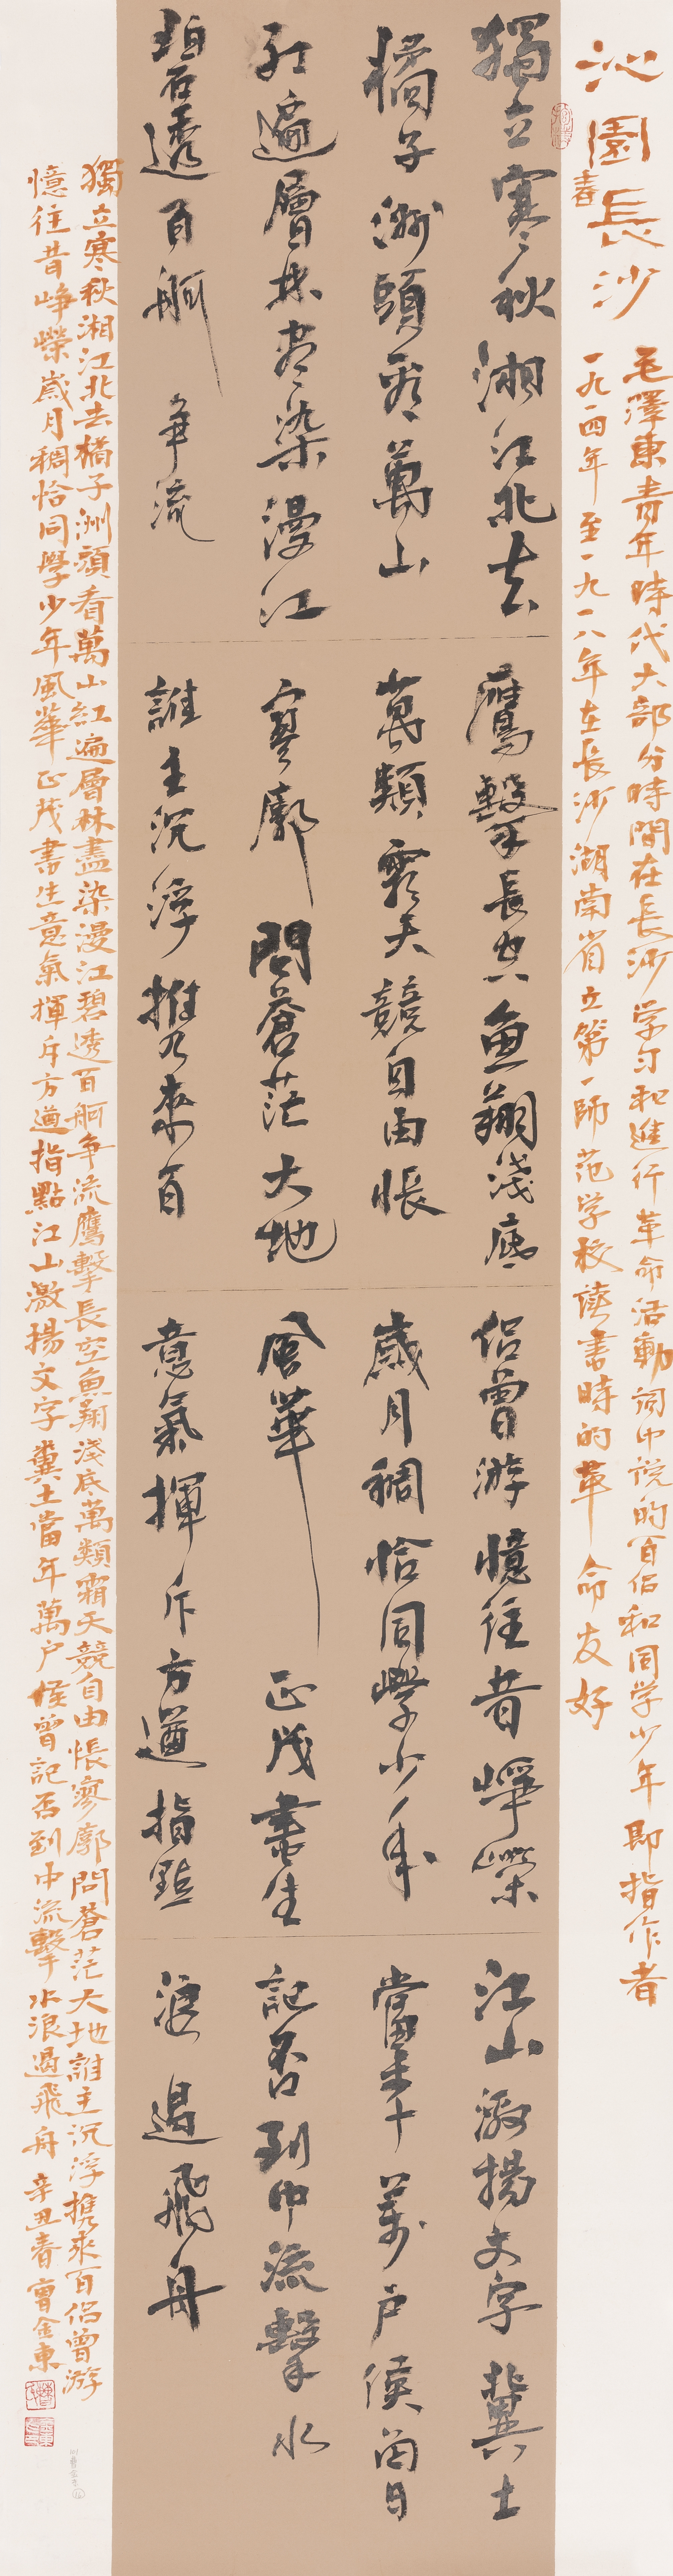 沁園春長沙
毛澤東青年時代大部分時間在長沙学习和進行革命活動词中说的百侣和同学少年即指作者
一九一四年至一九一八年在長沙湖南省立第一師范学校讀書時的革命友好
獨立寒秋湘江北去
橘子洲頭看萬山
紅遍層林盡染漫江
碧透百舸爭流
鷹擊長空魚翔淺底
萬類霜天競自由悵
寥廓問蒼茫大地
誰主沉浮攜來百
侣曾游憶往昔崢嶸
歲月稠恰同學少年
風華正茂書生
意氣揮斥方遒指點
江山激揚文字糞土
當年萬户侯曾
記否到中流擊水
浪遏飛舟
獨立寒秋湘江北去橘子洲頭看萬山紅遍層林盡染漫江碧透百舸争流鷹擊長空魚翔淺底萬類霜天競自由悵寥廓問蒼茫大地誰主沉浮携來百侣曾游
憶往昔崢嶸歲月稠恰同學少年風華正茂書生意氣揮斥方遒指點江山激揚文字糞土當年萬户侯曾記否到中流擊水浪遏飛舟辛丑春曹金東